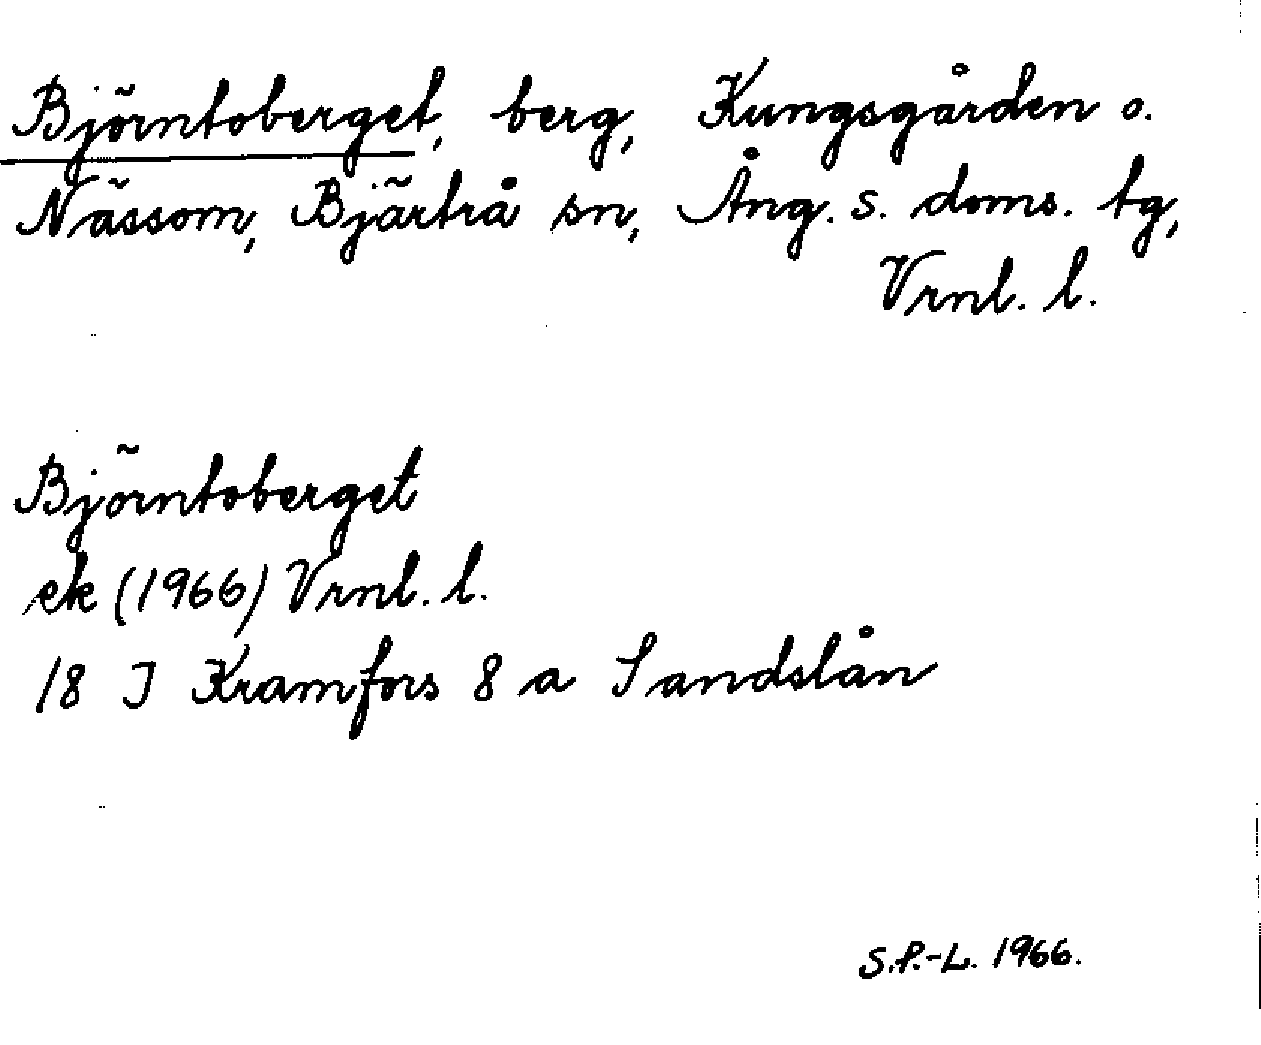 Björntoberget, berg, Kungsgården o.
Nässom, Bjärtrå sn, Ång. s. doms. tg,
Vrnl. l.
Björntoberget
ek (1966) Vrnl. l.
18 J Kramfors 8 a Sandslån
S.P.-L. 1966.